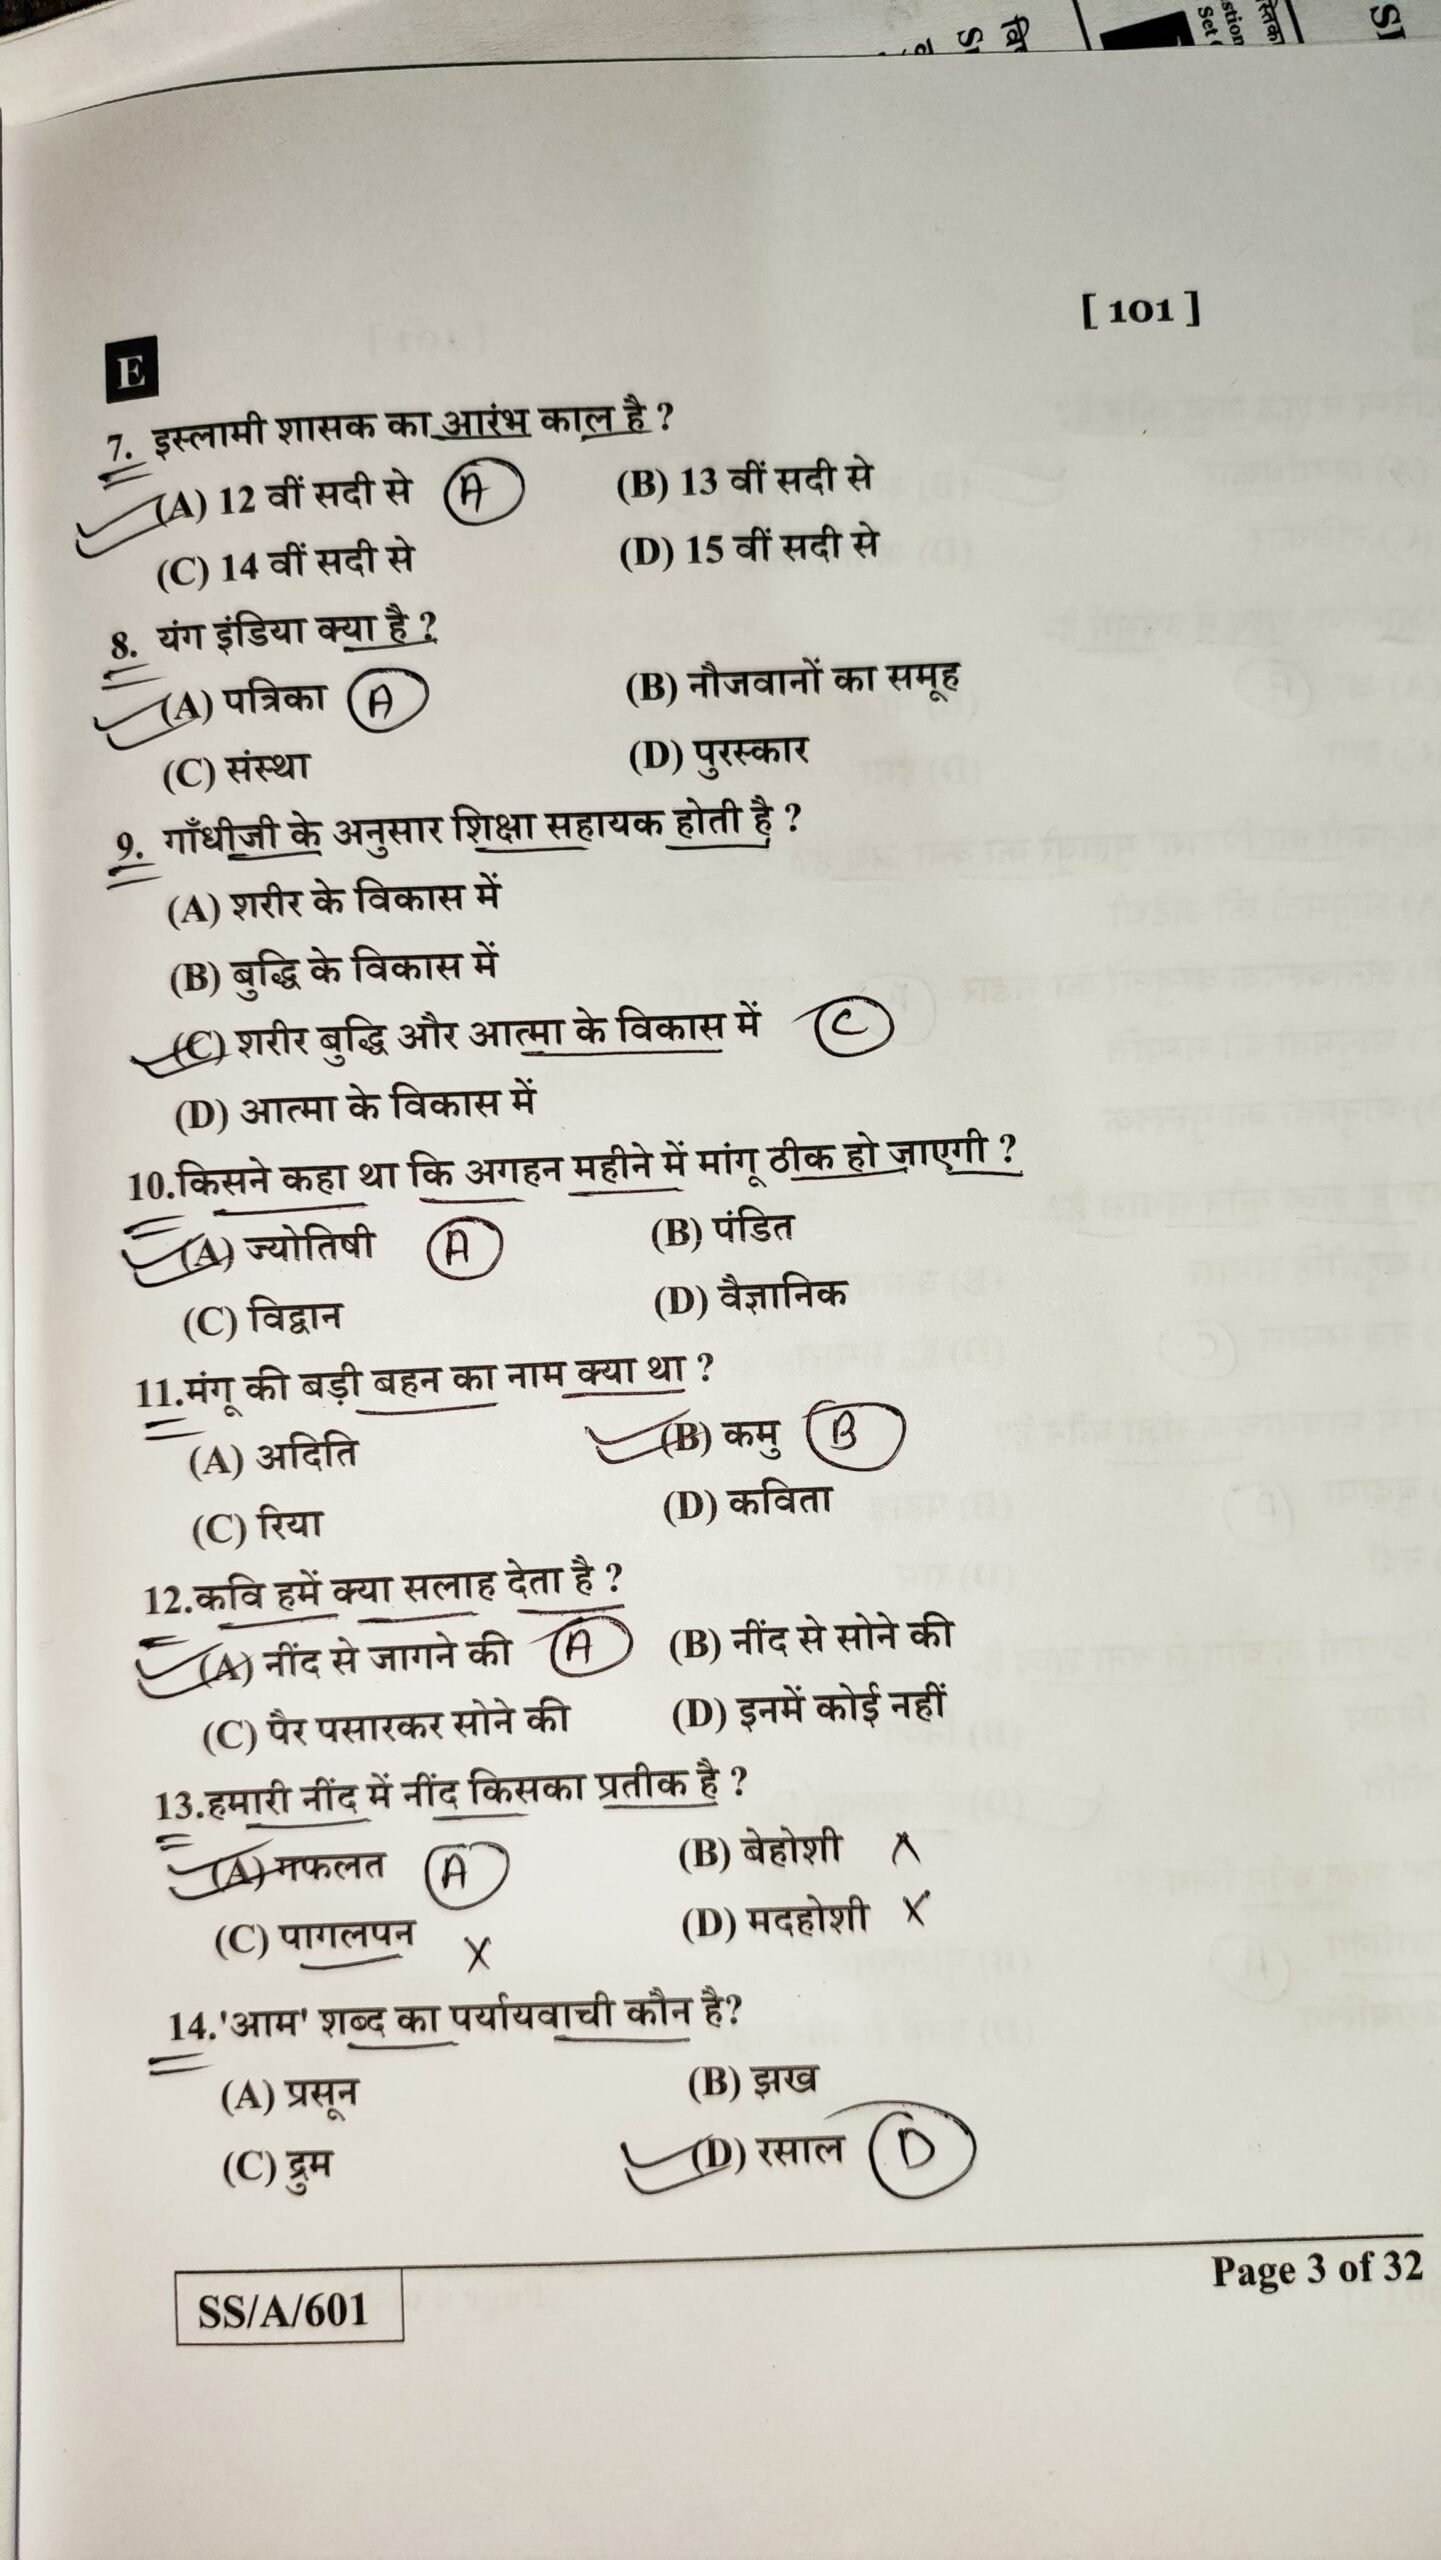 [ 101 ]
E
7. इस्लामी शासक का आरंभ काल है ?
(A) 12 वीं सदी से A (B) 13 वीं सदी से
(C) 14 वीं सदी से (D) 15 वीं सदी से
8. यंग इंडिया क्या है ?
(A) पत्रिका A (B) नौजवानों का समूह
(C) संस्था (D) पुरस्कार
9. गाँधीजी के अनुसार शिक्षा सहायक होती है ?
(A) शरीर के विकास में
(B) बुद्धि के विकास में
(C) शरीर बुद्धि और आत्मा के विकास में C
(D) आत्मा के विकास में
10.किसने कहा था कि अगहन महीने में मांगू ठीक हो जाएगी ?
(A) ज्योतिषी A (B) पंडित
(C) विद्वान (D) वैज्ञानिक
11.मंगू की बड़ी बहन का नाम क्या था ?
(A) अदिति (B) कमु B
(C) रिया (D) कविता
12.कवि हमें क्या सलाह देता है ?
(A) नींद से जागने की A (B) नींद से सोने की
(C) पैर पसारकर सोने की (D) इनमें कोई नहीं
13.हमारी नींद में नींद किसका प्रतीक है ?
(A) गफलत A (B) बेहोशी
(C) पागलपन X (D) मदहोशी X
14.'आम' शब्द का पर्यायवाची कौन है?
(A) प्रसून (B) झख
(C) द्रुम (D) रसाल D
SS/A/601 Page 3 of 32